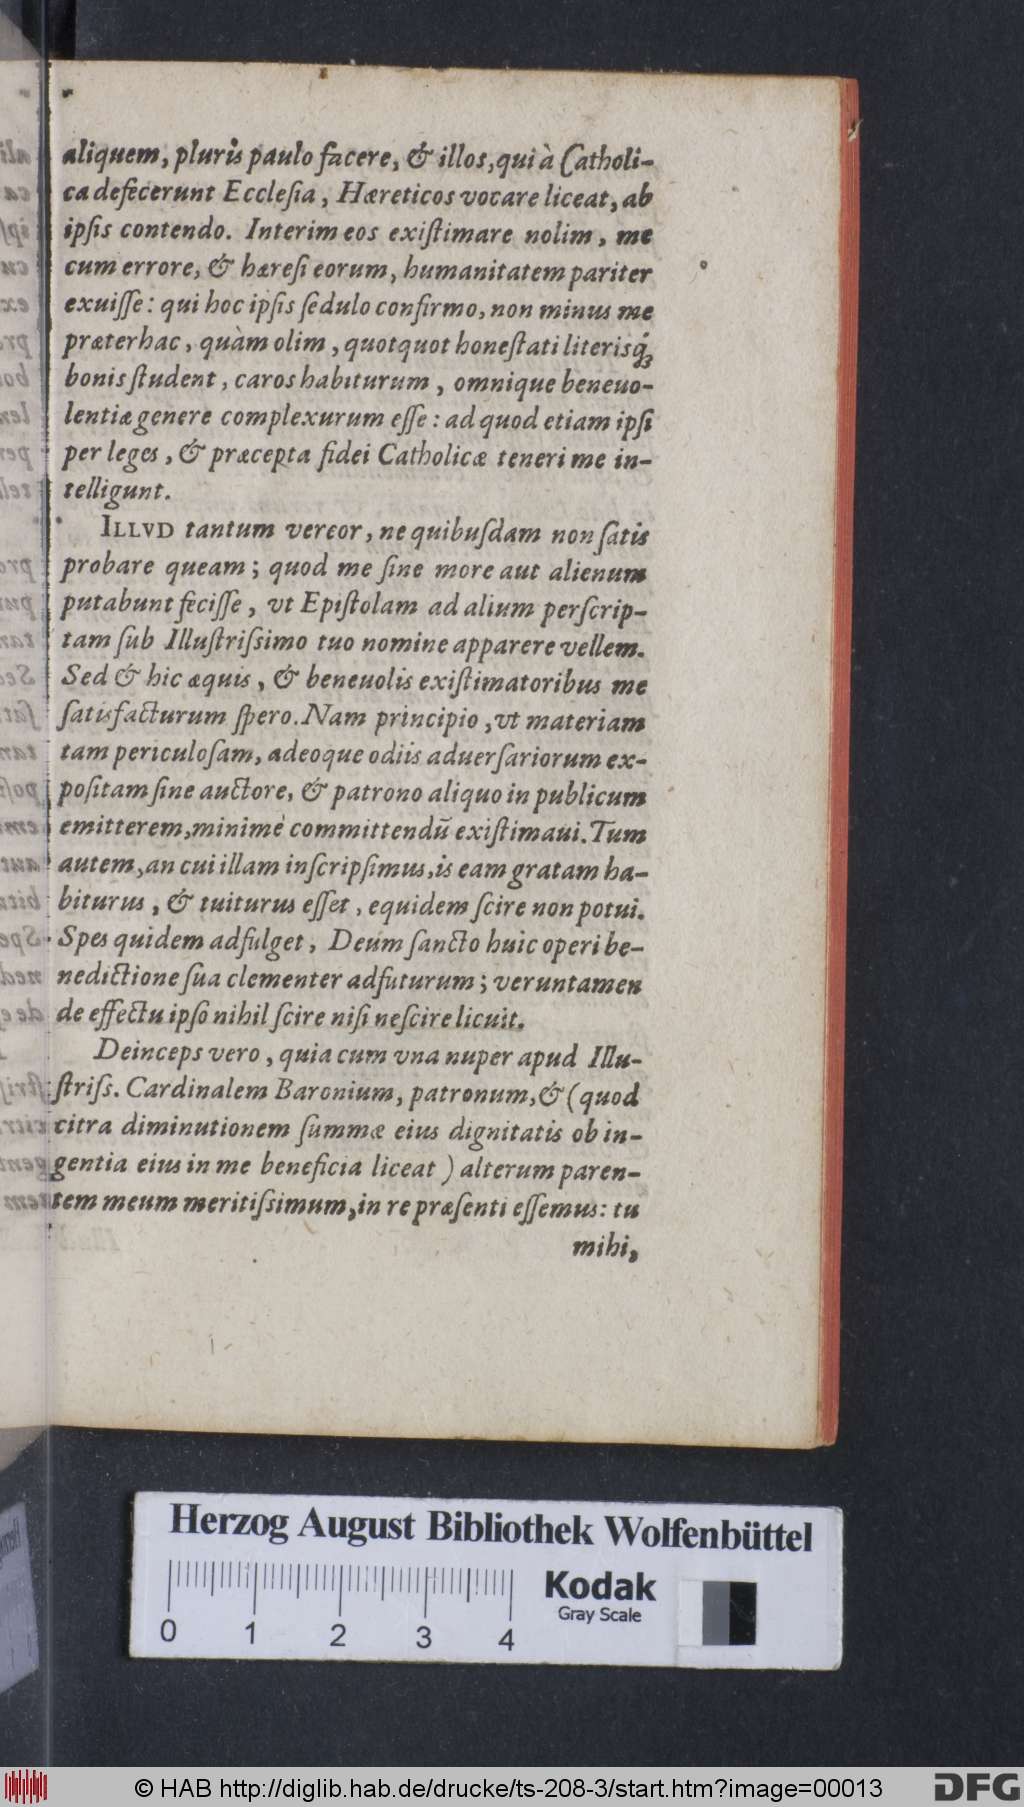 aliquem, pluris paulo facere, & illos, qui à Catholi-
ca defecerunt Ecclesia, Hæreticos vocare liceat, ab
ipsis contendo. Interim eos existimare nolim, me
cum errore, & hæresi eorum, humanitatem pariter
exuisse: qui hoc ipsis sedulo confirmo, non minus me
præterhac, quàm olim, quotquot honestati literisq́;
bonis student, caros habiturum, omnique beneuo-
lentiæ genere complexurum esse: ad quod etiam ipsi
per leges, & præcepta fidei Catholicæ teneri me in-
telligunt.
ILLVD tantum vereor, ne quibusdam non satis
probare queam; quod me sine more aut alienum
putabunt fecisse, vt Epistolam ad alium perscrip-
tam sub Illustrissimo tuo nomine apparere vellem.
Sed & hic æquis, & beneuolis existimatoribus me
satisfacturum spero. Nam principio, vt materiam
tam periculosam, adeoque odiis aduersariorum ex-
positam sine auctore, & patrono aliquo in publicum
emitterem, minimè committendū existimaui. Tum
autem, an cui illam inscripsimus, is eam gratam ha-
biturus, & tuiturus esset, equidem scire non potui.
Spes quidem adfulget, Deum sancto huic operi be-
nedictione sua clementer adfuturum; veruntamen
de effectu ipso nihil scire nisi nescire licuit.
Deinceps vero, quia cum vna nuper apud Illu-
striss. Cardinalem Baronium, patronum, & (quod
citra diminutionem summæ eius dignitatis ob in-
gentia eius in me beneficia liceat) alterum paren-
tem meum meritissimum, in re præsenti essemus: tu
mihi,
Herzog August Bibliothek Wolfenbüttel
Kodak
Gray Scale
0 1 2 3 4
© HAB http://diglib.hab.de/drucke/ts-208-3/start.htm?image=00013
DFG